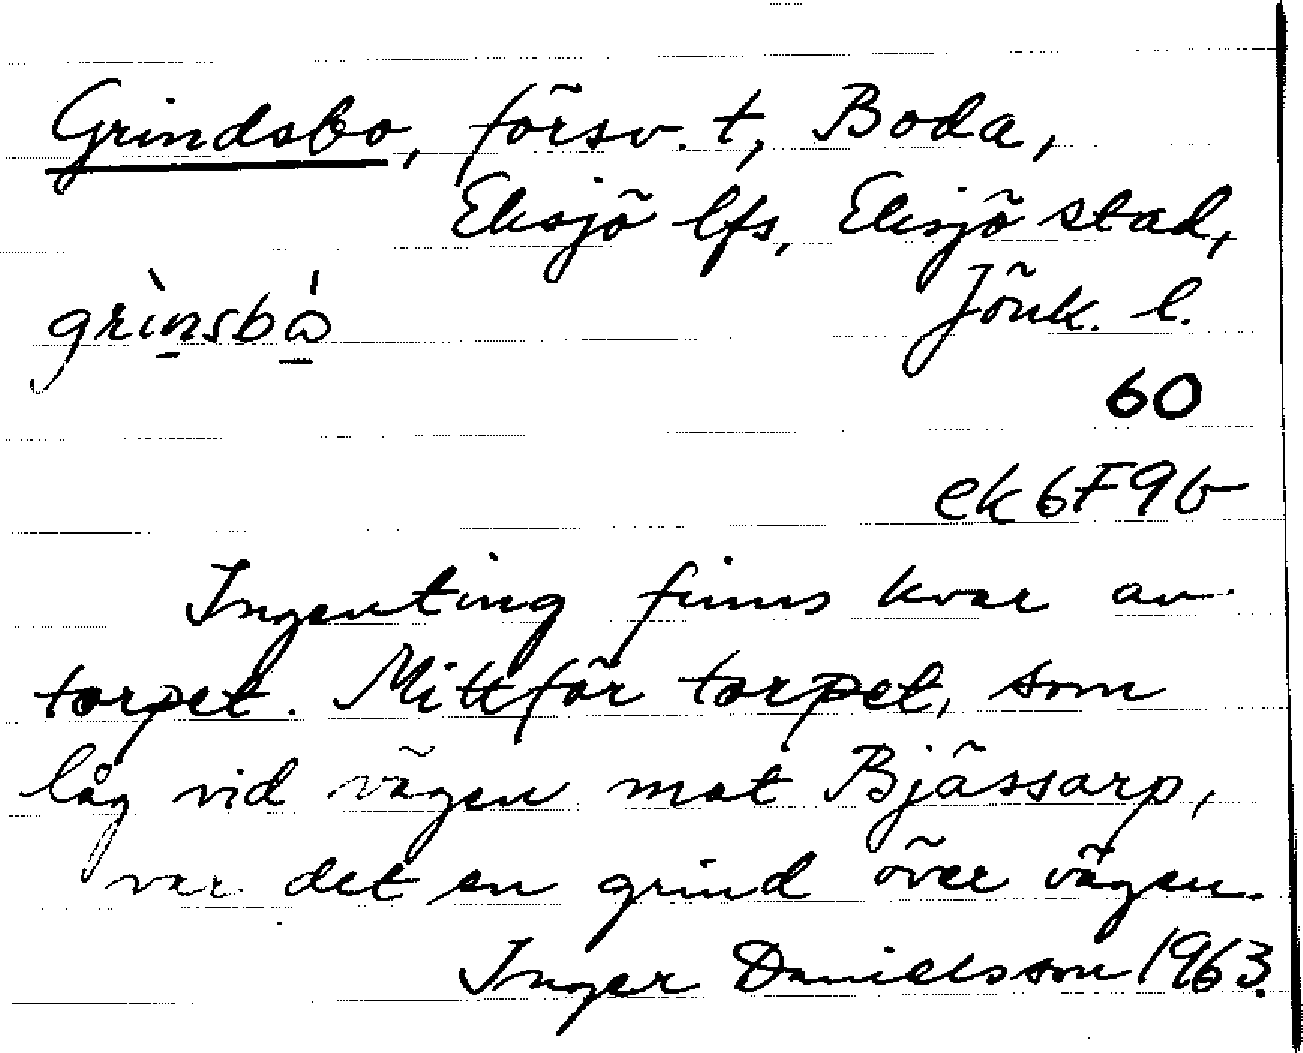 Grindsbo, försv. t, Boda,
Eksjö lfs, Eksjö stad,
Jönk. l.
60
ek 6F9b
Ingenting finns kvar av
torpet. Mittför torpet, som
låg vid vägen mot Bjässarp,
var det en grind över vägen.
Inger Danielsson 1963.